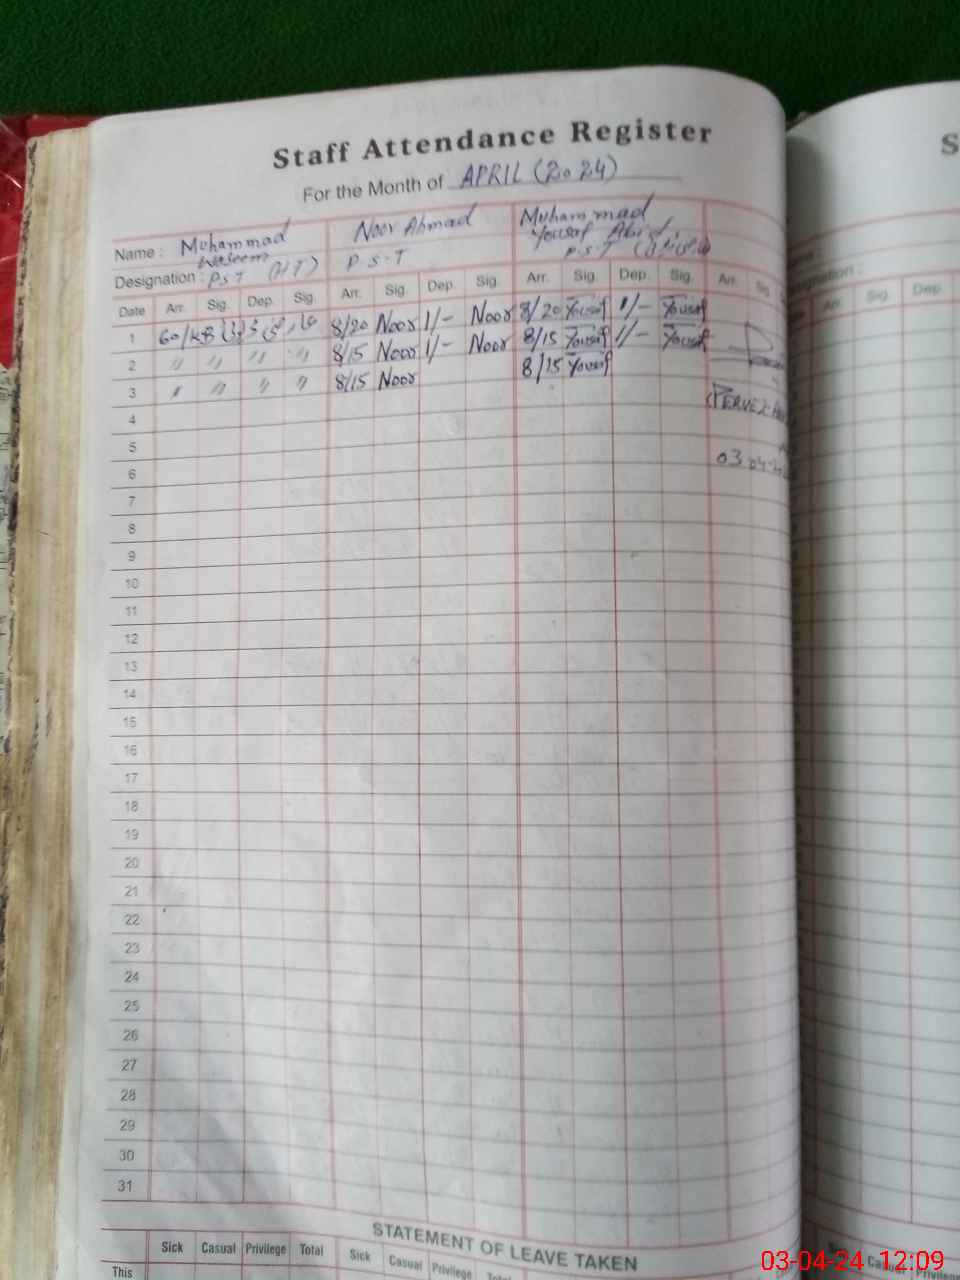 Staff Attendance Register
For the Month of APRIL (2024)
Name : Muhammad Waseem Noor Ahmad Muhammad Yousaf
Designation : P S T (HT) P. S. T P. S. T
Date Arr. Sig. Dep. Sig. Arr. Sig. Dep. Sig. Arr. Sig. Dep. Sig. Arr.
1 8/20 Noor 1/- Noor 8/20 Yousaf 1/- Yousaf
2 〃 〃 〃 〃 8/15 Noor 1/- Noor 8/15 Yousaf 1/- Yousaf
3 〃 〃 〃 〃 8/15 Noor 8/15 Yousaf
4
5
6
7
8
9
10
11
12
13
14
15
16
17
18
19
20
21
22
23
24
25
26
27
28
29
30
31
STATEMENT OF LEAVE TAKEN
Sick Casual Privilege Total Sick Casual Privilege
This
S
Arr. Sig. Dep.
03-04-24 12:09